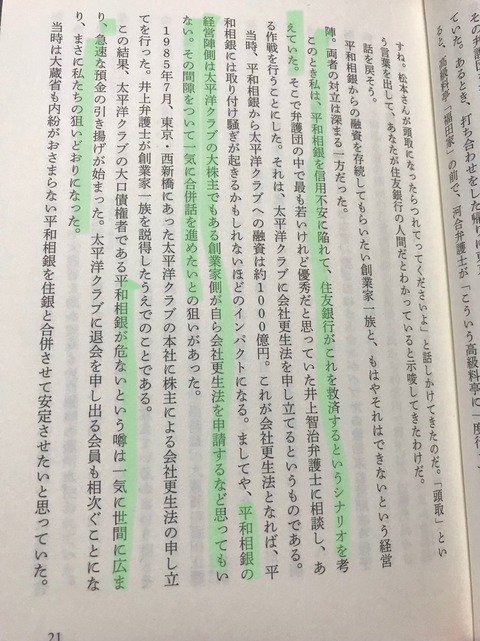 ていた。あるとき、打ち合わせをした帰りに東
ある、高級料亭「福田家」の前で、河合弁護士が「こういう高級料亭に一度行
すね。松本さんが頭取になったらつれてってくださいよ」と話しかけてきたのだ。「頭取」とい
う言葉を出して、あなたが住友銀行の人間だとわかっていると示唆してきたわけだ。
話を戻そう。
平和相銀からの融資を存続してもらいたい創業家一族と、もはやそれはできないという経営
陣。両者の対立は深まる一方だった。
このとき私は、平和相銀を信用不安に陥れて、住友銀行がこれを救済するというシナリオを考
えていた。そこで弁護団の中で最も若いけれど優秀だと思っていた井上智治弁護士に相談し、あ
る作戦を行うことにした。それは、太平洋クラブに会社更生法を申し立てるというものである。
当時、平和相銀から太平洋クラブへの融資は約1000億円。これが会社更生法となれば、平
和相銀には取り付け騒ぎが起きるかもしれないほどのインパクトになる。ましてや、平和相銀の
経営陣側は太平洋クラブの大株主でもある創業家側が自ら会社更生法を申請するなど思ってもい
ない。その間隙をついて一気に合併話を進めたいとの狙いがあった。
1985年7月、東京・西新橋にあった太平洋クラブの本社に株主による会社更生法の申し立
てを行った。井上弁護士が創業家一族を説得したうえでのことである。
この結果、太平洋クラブの大口債権者である平和相銀が危ないという噂は一気に世間に広ま
り、急速な預金の引き揚げが始まった。太平洋クラブに退会を申し出る会員も相次ぐことにな
り、まさに私たちの狙いどおりになった。
当時は大蔵省も内紛がおさまらない平和相銀を住銀と合併させて安定させたいと思っていた。
21